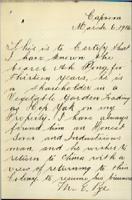 Caproon
March 6. 1916
This is to Certify that
I have known the
bearer Ah Pong for
thirteen years, he is
a shareholder in a
Vegetable Garden trading
as Hop Yick in my
Property. I have always
found him an Honest
Sober and Industrious
man and he wishes to
return to China with a
view of returning to this
Colony to resume his business
Mr E.